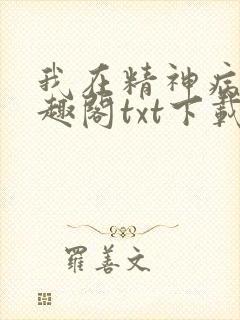 我在精神病
趣阁txt下载
羅善文